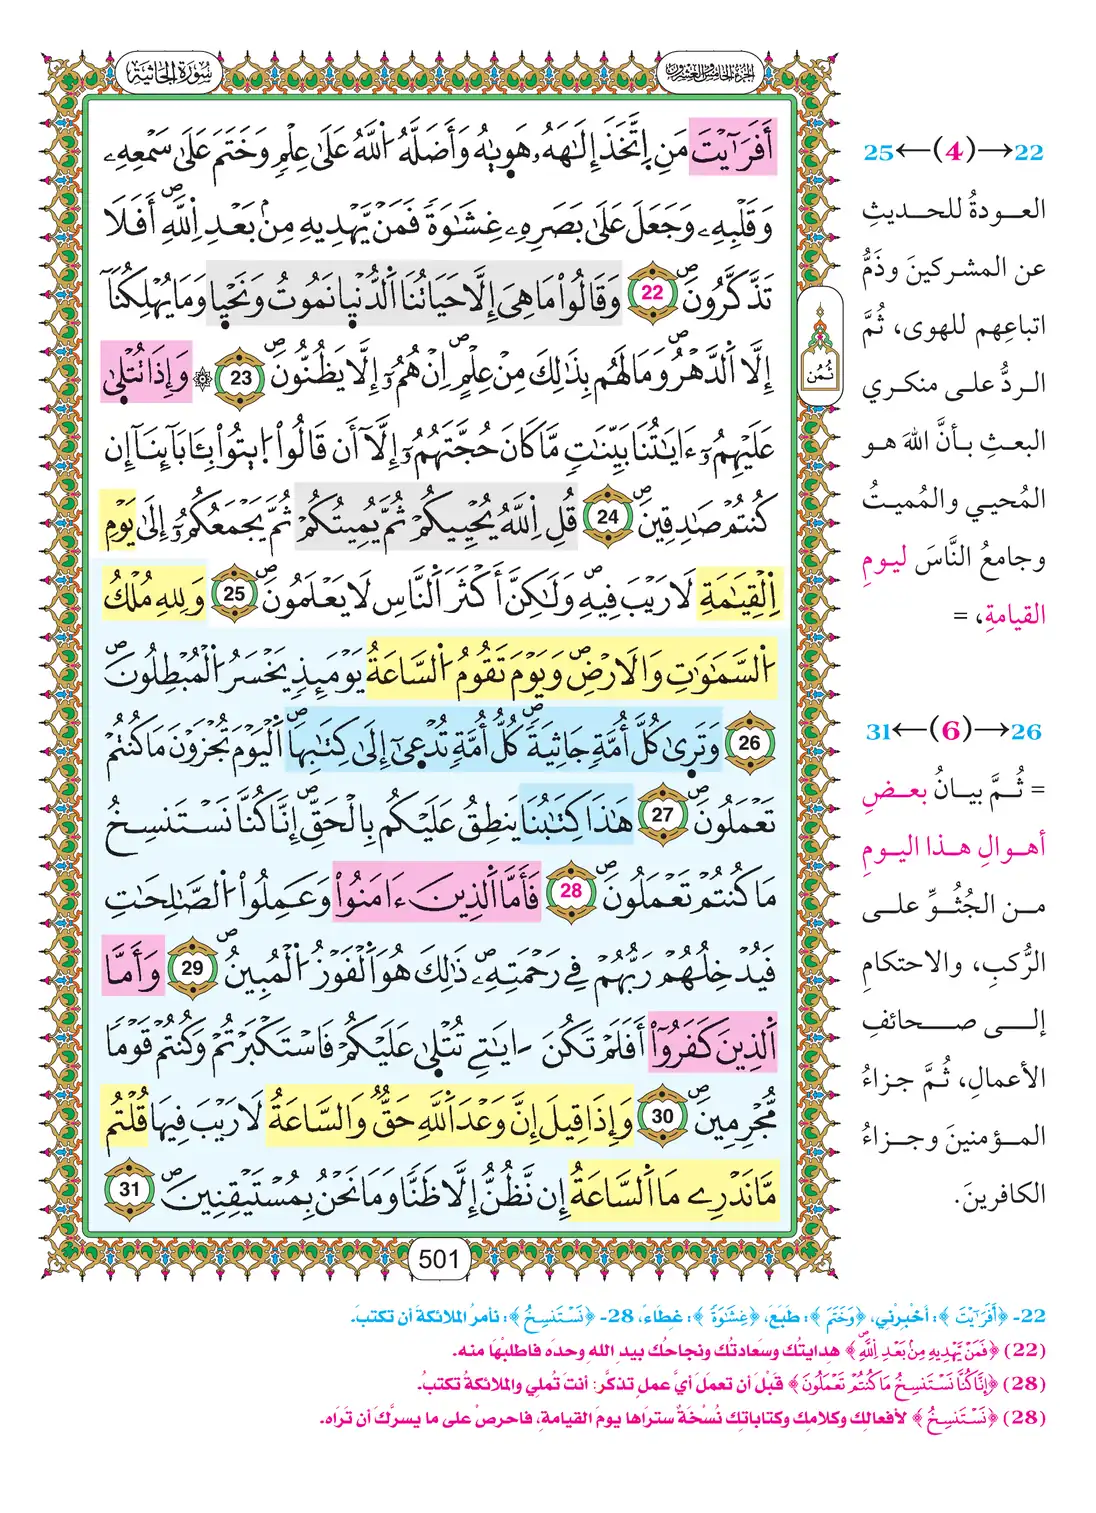 سُورَةُ الجَاثِيَةِ
الجزء الخامس والعشرون
أَفَرَٰٓيْتَ مَنِ اِتَّخَذَ إِلَٰهَهُۥ هَوِيٰهُ وَأَضَلَّهُ اُللَّهُ عَلَىٰ عِلْمٖ وَخَتَمَ عَلَىٰ سَمْعِهِۦ
وَقَلْبِهِۦ وَجَعَلَ عَلَىٰ بَصَرِهِۦ غِشَٰوَةٗ فَمَنْ يَّهْدِيهِ مِنۢ بَعْدِ اِللَّهِۖ أَفَلَا
تَذَّكَّرُونَۖ 22 وَقَالُواْ مَا هِىَ إِلَّا حَيَاتُنَا اَلدُّنْيِا نَمُوتُ وَنَحْيِا وَمَا يُهْلِكُنَآ
إِلَّا اَلدَّهْرُۖ وَمَا لَهُم بِذَٰلِكَ مِنْ عِلْمٍۖ اِنْ هُمُۥٓ إِلَّا يَظُنُّونَۖ 23 ۞ وَإِذَا تُتْلِىٰ
عَلَيْهِمُۥٓ ءَايَٰتُنَا بَيِّنَٰتٖ مَّا كَانَ حُجَّتَهُمُۥٓ إِلَّآ أَن قَالُواْ اُ۪يتُواْ بِـَٔابَآئِنَآ إِن
كُنتُمْ صَٰدِقِينَۖ 24 قُلِ اِللَّهُ يُحْيِيكُمْ ثُمَّ يُمِيتُكُمْ ثُمَّ يَجْمَعُكُمُۥٓ إِلَىٰ يَوْمِ
اِلْقِيَٰمَةِ لَا رَيْبَ فِيهِۖ وَلَٰكِنَّ أَكْثَرَ اَلنَّاسِ لَا يَعْلَمُونَۖ 25 وَلِلهِ مُلْكُ
اُلسَّمَٰوَٰتِ وَالَارْضِۖ وَيَوْمَ تَقُومُ اُلسَّاعَةُ يَوْمَئِذٖ يَخْسَرُ اُلْمُبْطِلُونَۖ
26 وَتَرِىٰ كُلَّ أُمَّةٖ جَاثِيَةٗۖ كُلُّ أُمَّةٖ تُدْعِىٰٓ إِلَىٰ كِتَٰبِهَاۖ اَلْيَوْمَ تُجْزَوْنَ مَا كُنتُمْ
تَعْمَلُونَۖ 27 هَٰذَا كِتَٰبُنَا يَنطِقُ عَلَيْكُم بِالْحَقِّۖ إِنَّا كُنَّا نَسْتَنسِخُ
مَا كُنتُمْ تَعْمَلُونَۖ 28 فَأَمَّا اَلذِينَ ءَامَنُواْ وَعَمِلُواْ اُلصَّٰلِحَٰتِ
فَيُدْخِلُهُمْ رَبُّهُمْ فِے رَحْمَتِهِۦۖ ذَٰلِكَ هُوَ اَلْفَوْزُ اُلْمُبِينُۖ 29 وَأَمَّا
اَلذِينَ كَفَرُوٓاْ أَفَلَمْ تَكُنَ ـ ايَٰتِے تُتْلِىٰ عَلَيْكُمْ فَاسْتَكْبَرْتُمْ وَكُنتُمْ قَوْمٗا
مُّجْرِمِينَۖ 30 وَإِذَا قِيلَ إِنَّ وَعْدَ اَللَّهِ حَقّٞ وَالسَّاعَةُ لَا رَيْبَ فِيهَا قُلْتُم
مَّا نَدْرِے مَا اَلسَّاعَةُ إِن نَّظُنُّ إِلَّا ظَنّٗا وَمَا نَحْنُ بِمُسْتَيْقِنِينَۖ 31
ثُمُن
501
22→(4)←25
العودةُ للحديثِ
عن المشركينَ وذَمُّ
اتباعِهم للهوى، ثُمَّ
الردُّ على منكري
البعثِ بأنَّ اللهَ هو
المُحيي والمُميتُ
وجامعُ النَّاسَ ليومِ
القيامةِ، =
26→(6)←31
= ثُمَّ بيانُ بعضِ
أهوالِ هذا اليومِ
من الجُثُوِّ على
الرُّكبِ، والاحتكامِ
إلى صحائفِ
الأعمالِ، ثُمَّ جزاءُ
المؤمنينَ وجزاءُ
الكافرينَ.
22- ﴿أَفَرَٰٓيْتَ﴾: أخْبِرْنِي، ﴿وَخَتَمَ﴾: طَبَعَ، ﴿غِشَٰوَةٗ﴾: غطَاءً، 28- ﴿نَسْتَنسِخُ﴾: نأمرُ الملائكةَ أن تكتبَ.
(22) ﴿فَمَنْ يَّهْدِيهِ مِنۢ بَعْدِ اِللَّهِۖ﴾ هدايتُك وسعادتُك ونجاحُك بيدِ اللهِ وحدَه فاطلبْهَا منه.
(28) ﴿إِنَّا كُنَّا نَسْتَنسِخُ مَا كُنتُمْ تَعْمَلُونَ﴾ قَبْلَ أن تعملَ أيَّ عملٍ تذكَّر: أنتَ تُملي والملائكةُ تكتبُ.
(28) ﴿نَسْتَنسِخُ﴾ لأفعالِك وكلامِك وكتاباتِك نُسْخَةٌ ستراها يومَ القيامةِ، فاحرصْ على ما يسرُّكَ أن تَرَاه.